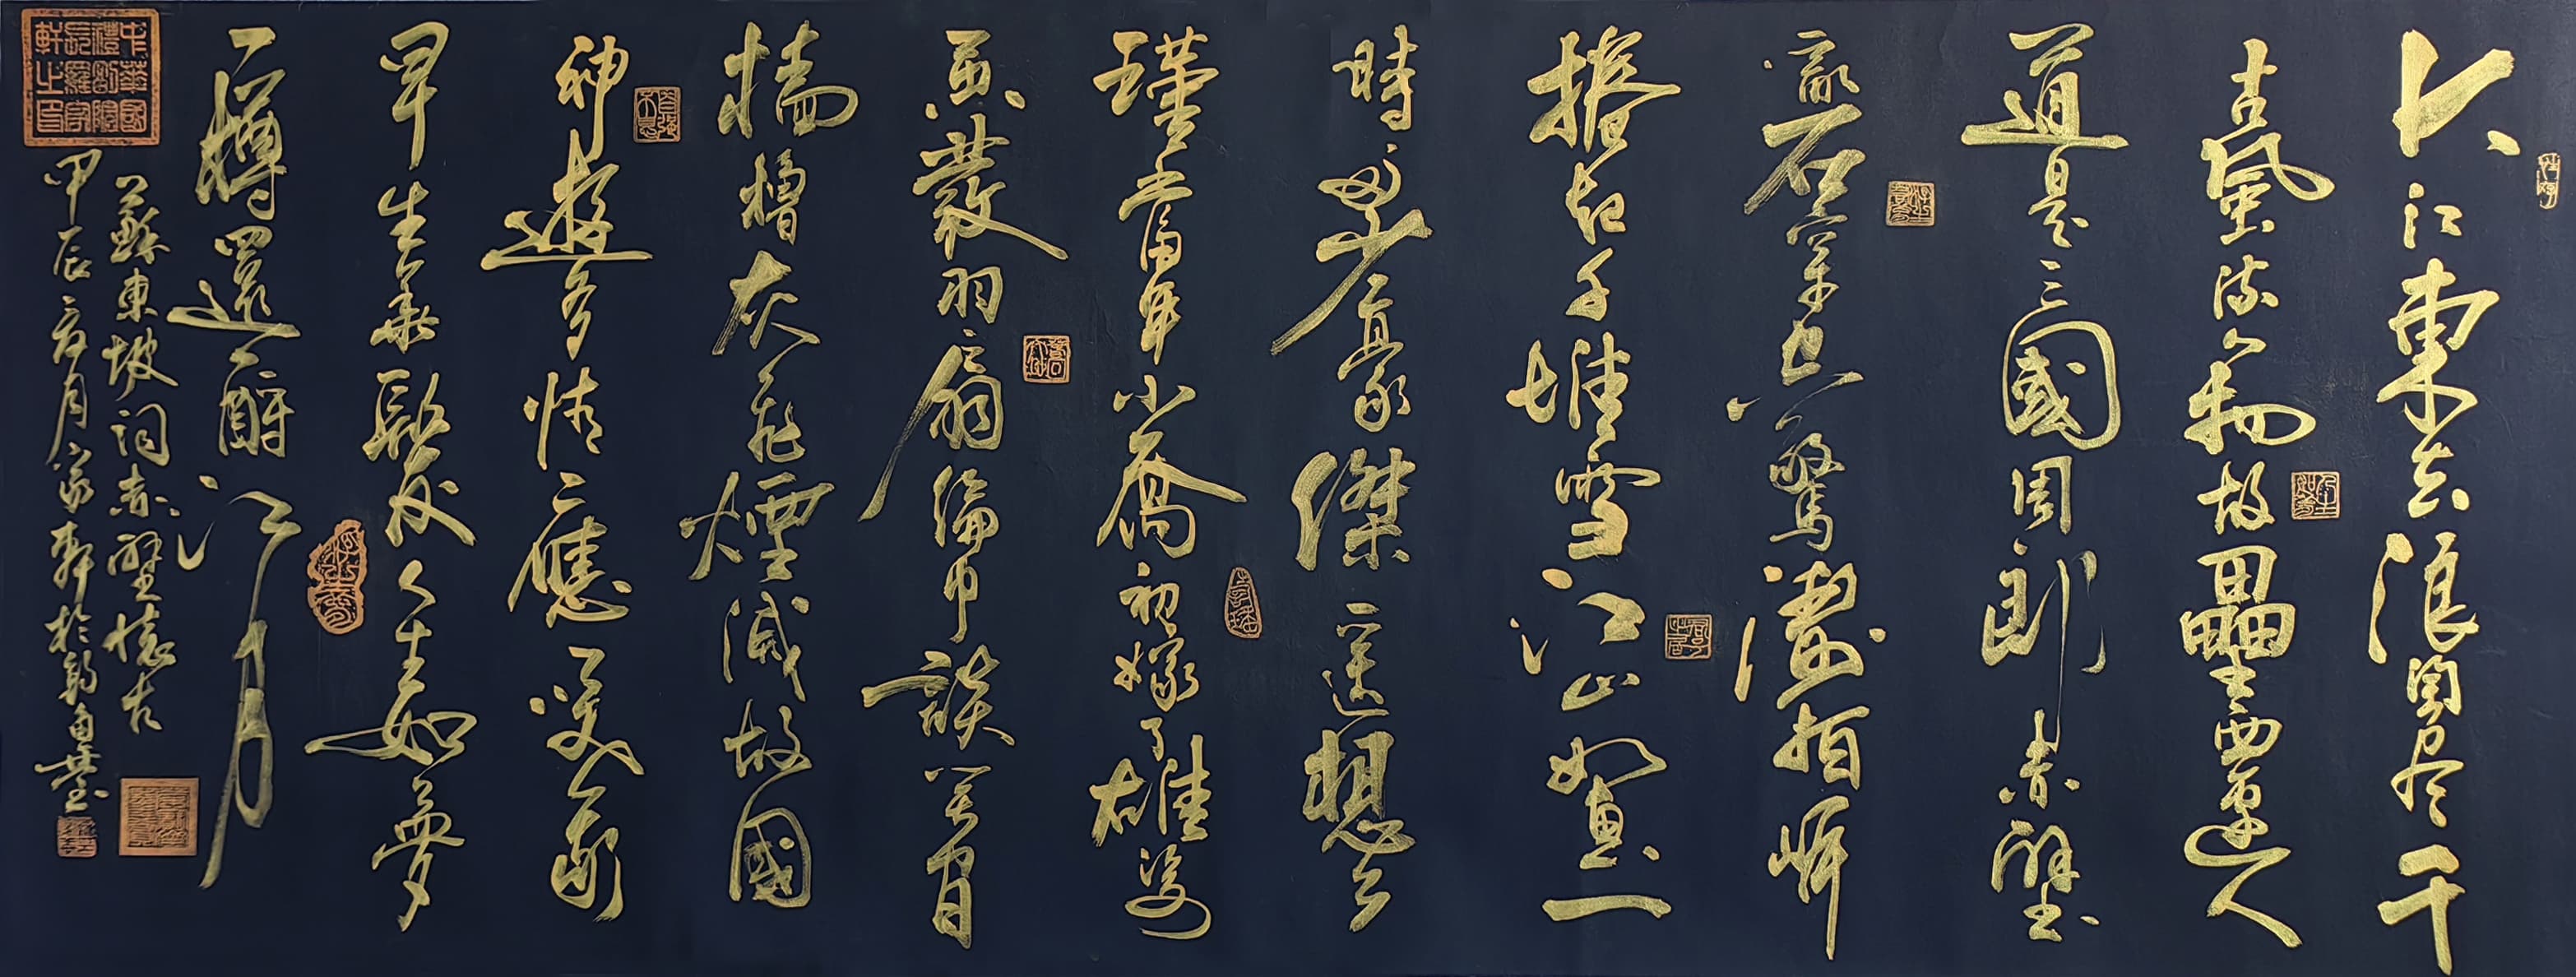 大江東去浪淘尽千
古風流人物故壘西邊人
道是三國周郎赤壁
亂石穿空驚濤拍岸
捲起千堆雪江山如畫一
時多少豪傑遙想公
瑾當年小喬初嫁了雄姿
英發羽扇綸巾談笑間
檣櫓灰飛煙滅故國
神遊多情應笑我
早生華髮人生如夢
一樽還酹江月
蘇東坡詞赤壁懷古
甲辰夏月家軒於